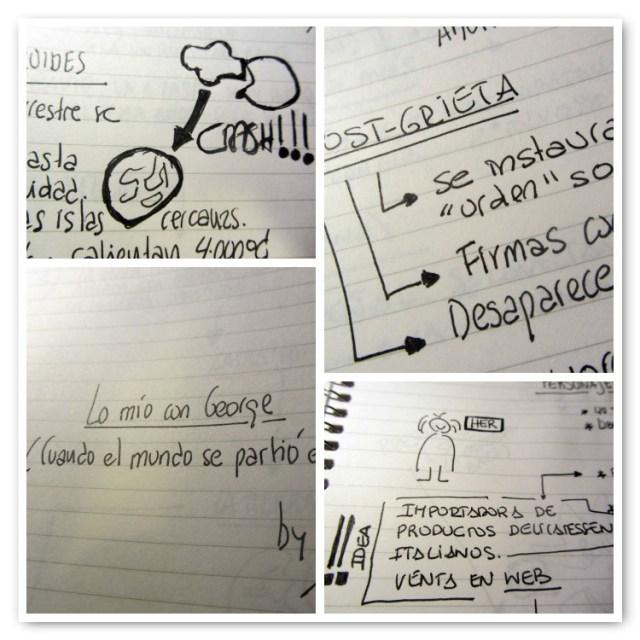 OIDES
restre
CRASH!!!
asta
idad.
as islas cercanas.
calientan 4.000ºC
OST-GRIETA
se instaura
"orden" so
Firmas con
Desaparece
Lo mío con George
(Cuando el mundo se partió e
by
PERSONAJE
HER
!!! IDEA
IMPORTADORA DE
PRODUCTOS DELICATESSEN
ITALIANOS.
VENTA EN WEB